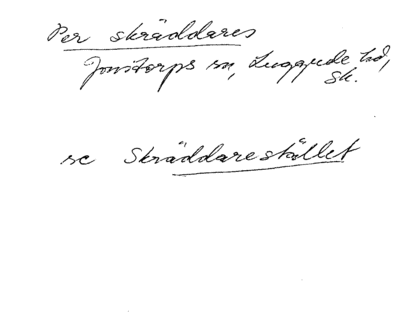 Per skräddares
Jonstorps sn, Luggude hd,
Sk.
se Skräddarestället